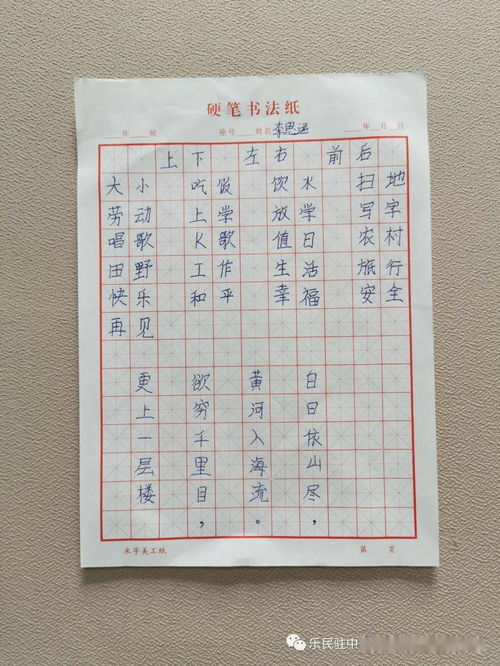 硬笔书法纸
年 班 座号 姓名 李思远 年 月 日
上 下 左 右 前 后
大小 吃饭 饮水 扫地
劳动 上学 放学 写字
唱歌 K歌 值日 农村
田野 工作 生活 旅行
快乐 和平 幸福 安全
再见
白日依山尽，
黄河入海流。
欲穷千里目，
更上一层楼
米字美工纸 第 页
乐民驻中